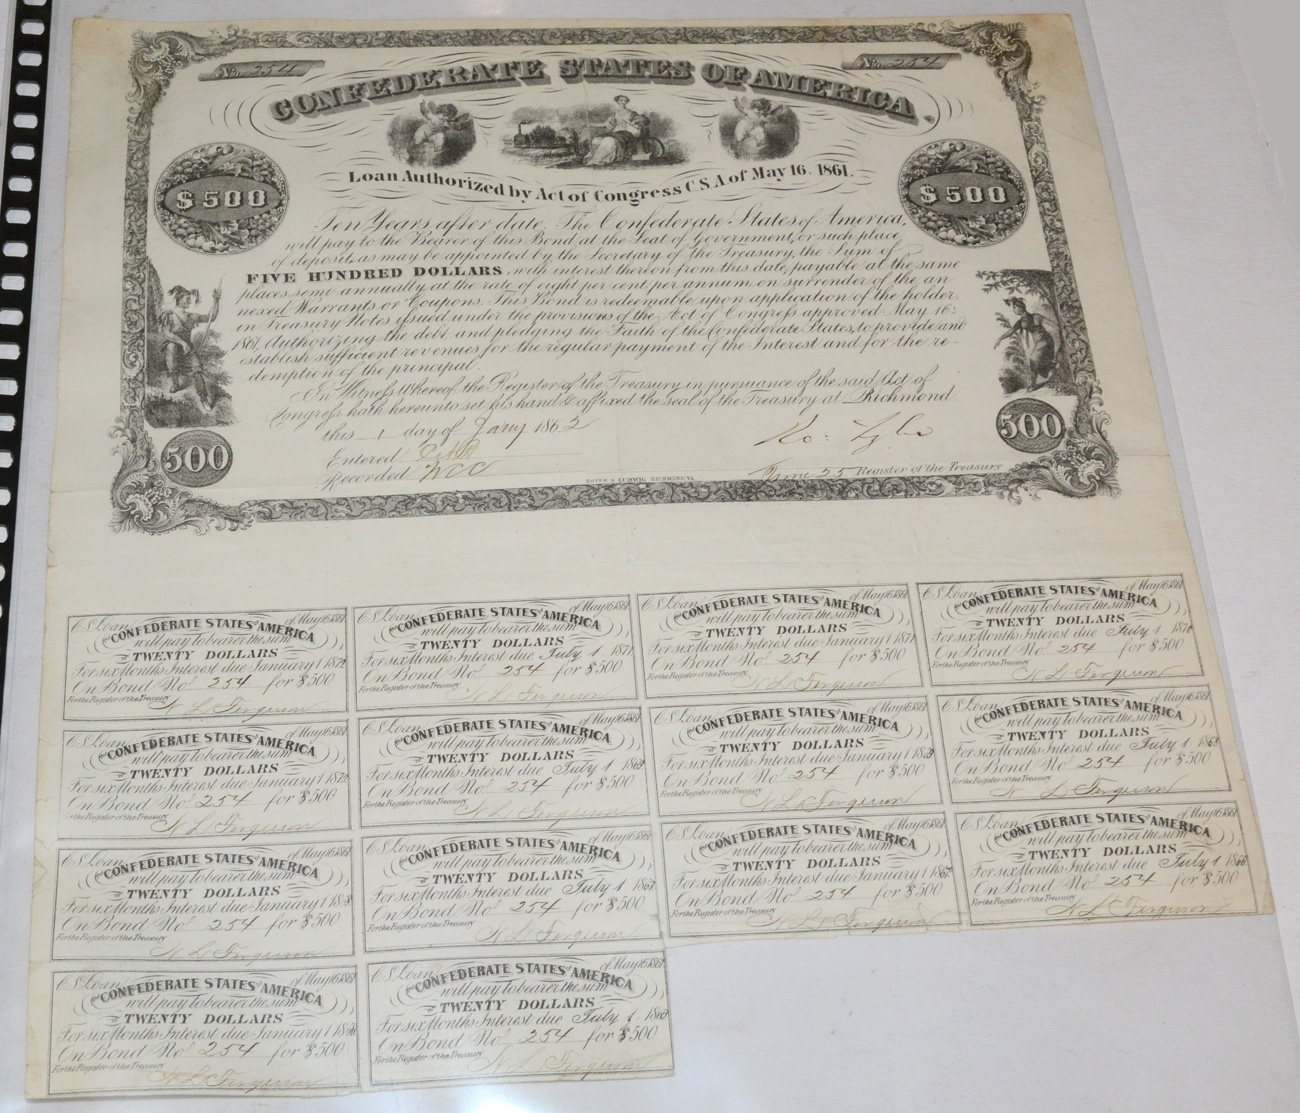 No. 254
No. 254
CONFEDERATE STATES OF AMERICA.
Loan Authorized by Act of Congress C.S.A of May 16. 1861.
$500
$500
Ten Years after date, The Confederate States of America,
will pay to the Bearer of this Bond, at the Seat of Government, or such place
of deposit, as may be appointed by the Secretary of the Treasury, the Sum of
FIVE HUNDRED DOLLARS, with interest thereon from this date, payable at the same
places semi annually at the rate of eight per cent per annum on surrender of the an
nexed Warrants or Coupons. This Bond is redeemable upon application of the holder,
in Treasury Notes issued under the provisions of the Act of Congress approved May 16,
1861, authorizing the debt and pledging the Faith of the Confederate States, to provide and
establish sufficient revenues for the regular payment of the Interest and for the re-
demption of the principal.
In Witness Whereof the Register of the Treasury in pursuance of the said Act of
Congress hath hereunto set his hand & affixed the seal of the Treasury at Richmond
this 1 day of Jany 1862
500
500
Entered
Recorded WCC
HOYER & LUDWIG RICHMOND VA.
June 25 Register of the Treasury
CS Loan of May 16 1861
CONFEDERATE STATES OF AMERICA
will pay to bearer the sum
TWENTY DOLLARS
For six Months Interest due January 1 1872
On Bond No. 254 for $500
For the Register of the Treasury
N L Ferguson
CS Loan of May 16 1861
CONFEDERATE STATES OF AMERICA
will pay to bearer the sum
TWENTY DOLLARS
For six Months Interest due July 1 1871
On Bond No. 254 for $500
For the Register of the Treasury
N L Ferguson
CS Loan of May 16 1861
CONFEDERATE STATES OF AMERICA
will pay to bearer the sum
TWENTY DOLLARS
For six Months Interest due January 1 1871
On Bond No. 254 for $500
For the Register of the Treasury
N L Ferguson
CS Loan of May 16 1861
CONFEDERATE STATES OF AMERICA
will pay to bearer the sum
TWENTY DOLLARS
For six Months Interest due July 1 1870
On Bond No. 254 for $500
For the Register of the Treasury
N L Ferguson
CS Loan of May 16 1861
CONFEDERATE STATES OF AMERICA
will pay to bearer the sum
TWENTY DOLLARS
For six Months Interest due January 1 1870
On Bond No. 254 for $500
For the Register of the Treasury
N L Ferguson
CS Loan of May 16 1861
CONFEDERATE STATES OF AMERICA
will pay to bearer the sum
TWENTY DOLLARS
For six Months Interest due July 1 1869
On Bond No. 254 for $500
For the Register of the Treasury
N L Ferguson
CS Loan of May 16 1861
CONFEDERATE STATES OF AMERICA
will pay to bearer the sum
TWENTY DOLLARS
For six Months Interest due January 1
On Bond No. 254 for $500
For the Register of the Treasury
N L Ferguson
CS Loan of May 16 1861
CONFEDERATE STATES OF AMERICA
will pay to bearer the sum
TWENTY DOLLARS
For six Months Interest due July 1 1868
On Bond No. 254 for $500
For the Register of the Treasury
N L Ferguson
CS Loan of May 16 1861
CONFEDERATE STATES OF AMERICA
will pay to bearer the sum
TWENTY DOLLARS
For six Months Interest due January 1 1868
On Bond No. 254 for $500
For the Register of the Treasury
N L Ferguson
CS Loan of May 16 1861
CONFEDERATE STATES OF AMERICA
will pay to bearer the sum
TWENTY DOLLARS
For six Months Interest due July 1 1867
On Bond No. 254 for $500
For the Register of the Treasury
N L Ferguson
CS Loan of May 16 1861
CONFEDERATE STATES OF AMERICA
will pay to bearer the sum
TWENTY DOLLARS
For six Months Interest due January 1 1867
On Bond No. 254 for $500
For the Register of the Treasury
N L Ferguson
CS Loan of May 16 1861
CONFEDERATE STATES OF AMERICA
will pay to bearer the sum
TWENTY DOLLARS
For six Months Interest due July 1 1866
On Bond No. 254 for $500
For the Register of the Treasury
N L Ferguson
CS Loan of May 16 1861
CONFEDERATE STATES OF AMERICA
will pay to bearer the sum
TWENTY DOLLARS
For six Months Interest due January 1 1866
On Bond No. 254 for $500
For the Register of the Treasury
N L Ferguson
CS Loan of May 16 1861
CONFEDERATE STATES OF AMERICA
will pay to bearer the sum
TWENTY DOLLARS
For six Months Interest due July 1
On Bond No. 254 for $500
For the Register of the Treasury
N L Ferguson